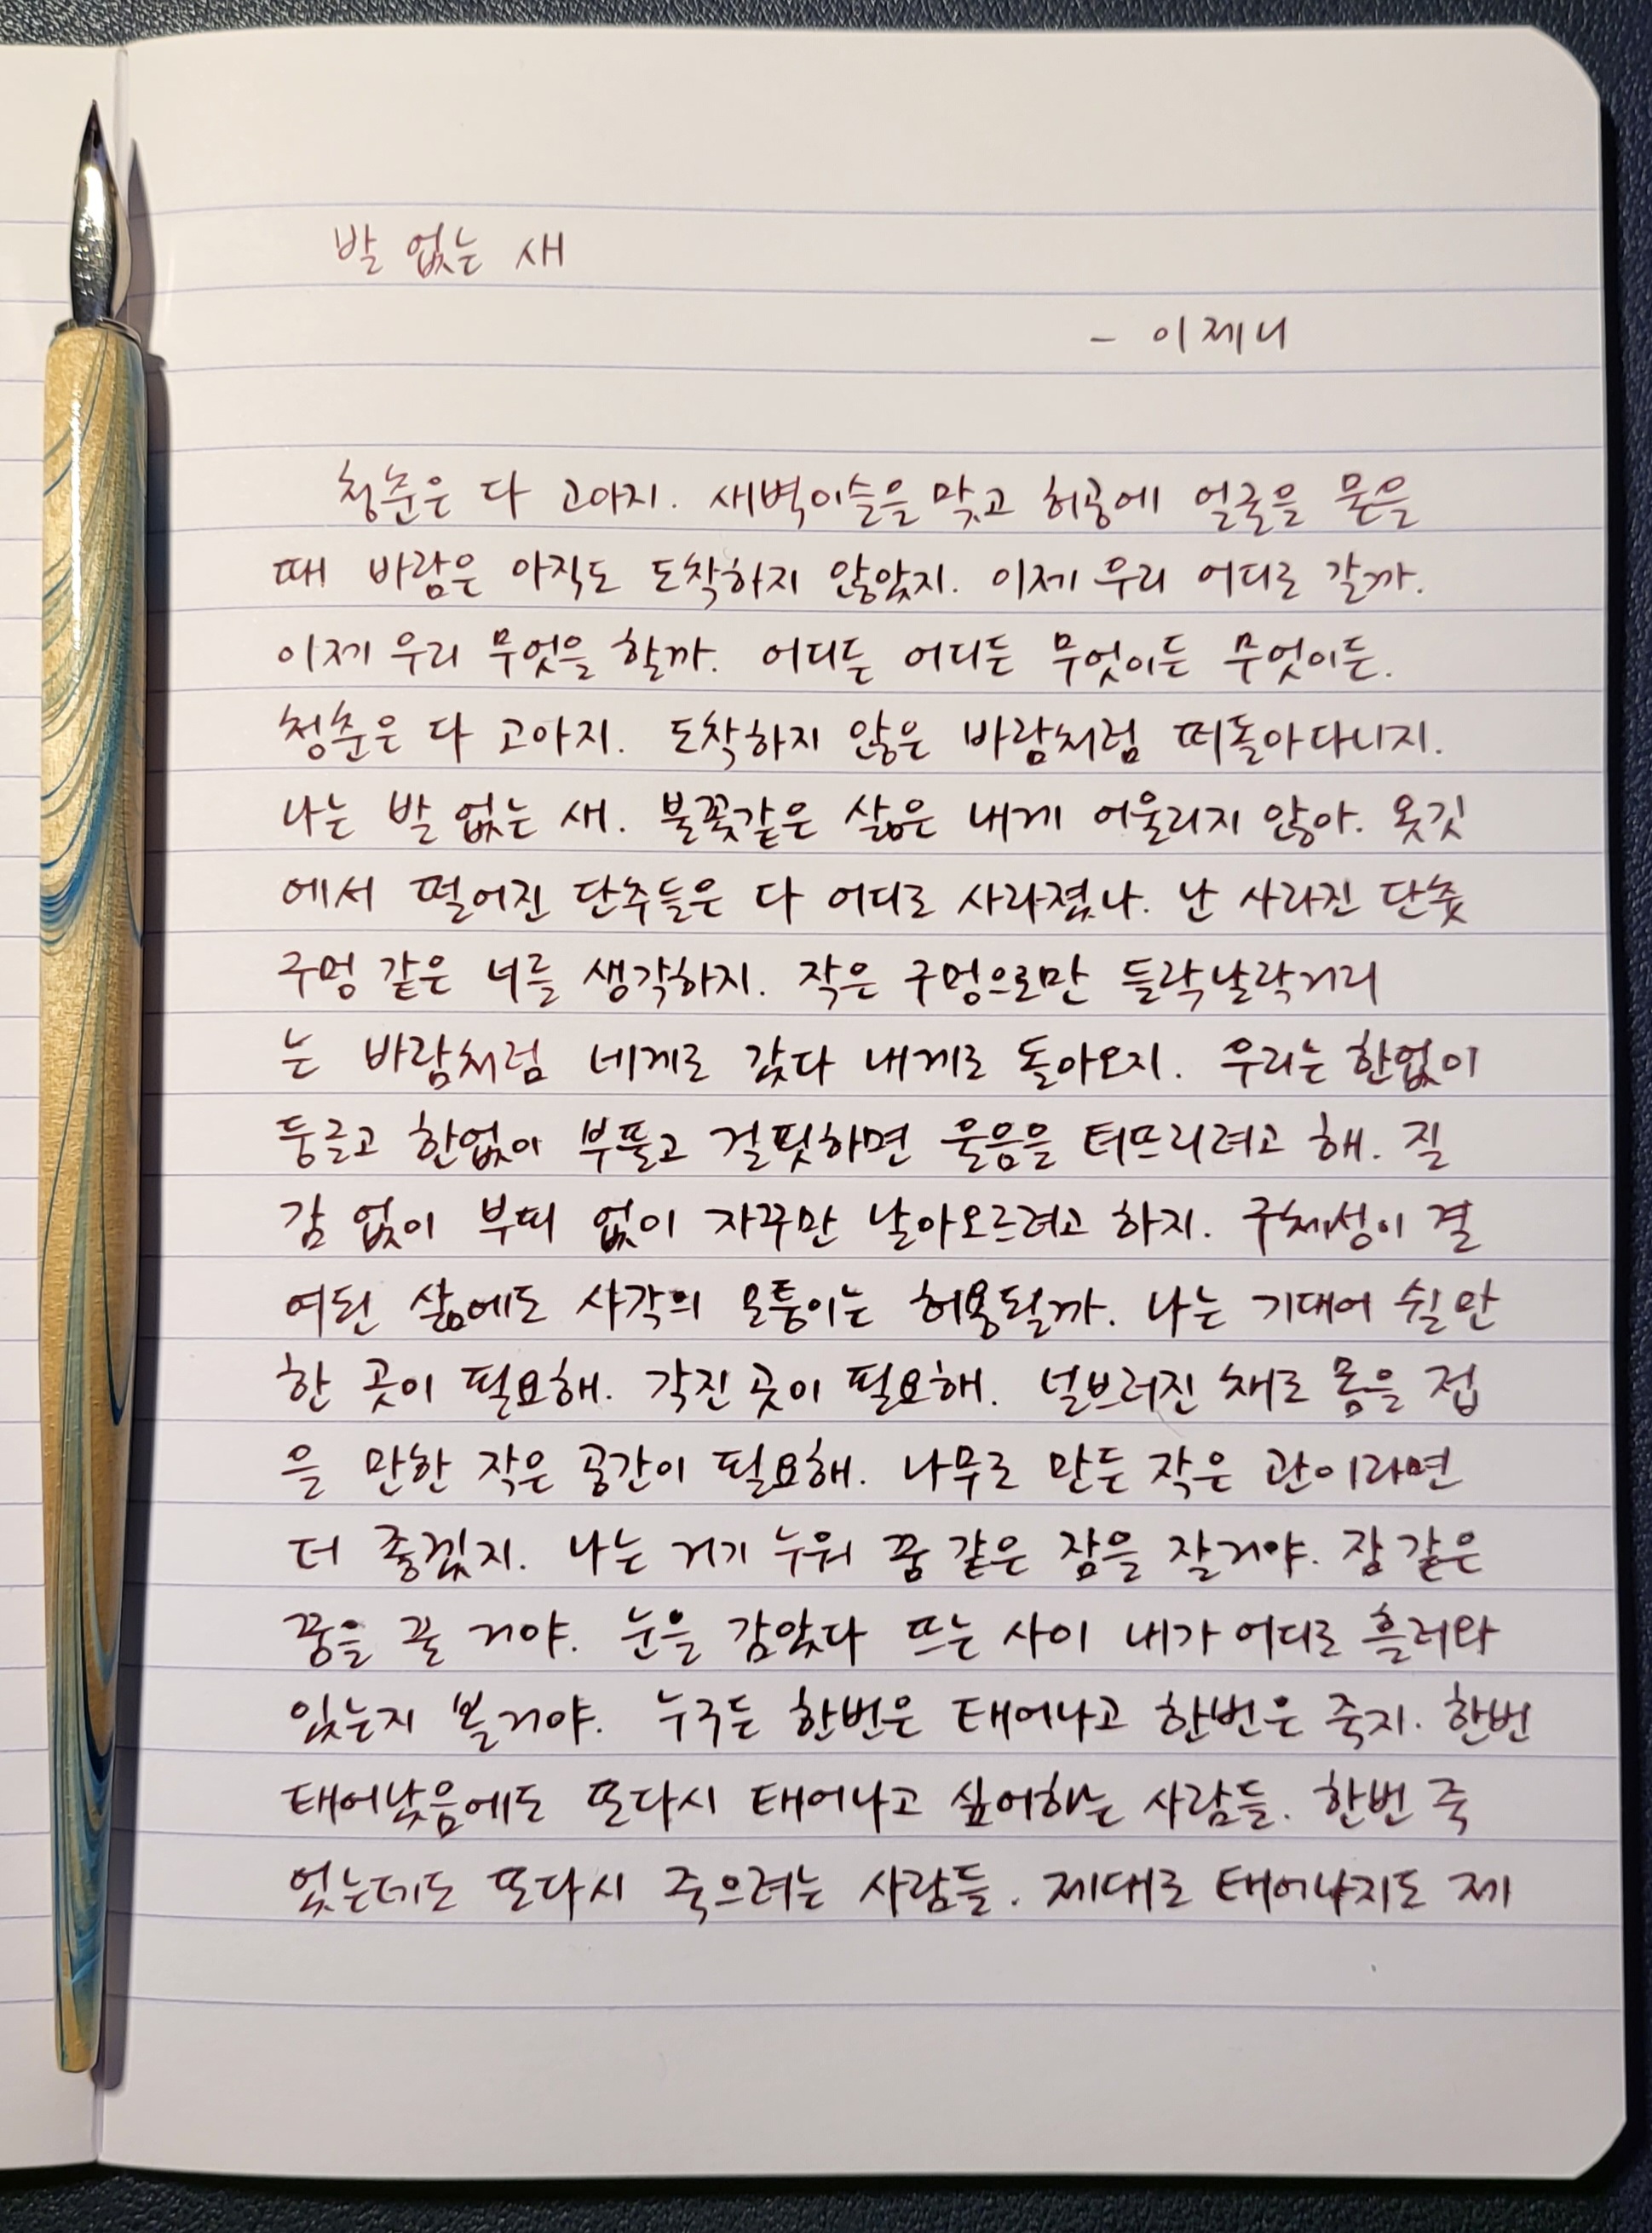 발 없는 새
- 이제니
청춘은 다 고아지. 새벽이슬을 맞고 허공에 얼굴을 묻을
때 바람은 아직도 도착하지 않았지. 이제 우리 어디로 갈까.
이제 우리 무엇을 할까. 어디든 어디든 무엇이든 무엇이든.
청춘은 다 고아지. 도착하지 않은 바람처럼 떠돌아다니지.
나는 발 없는 새. 불꽃같은 삶은 내게 어울리지 않아. 옷깃
에서 떨어진 단추들은 다 어디로 사라졌나. 난 사라진 단춧
구멍 같은 너를 생각하지. 작은 구멍으로만 들락날락거리
는 바람처럼 네게로 갔다 내게로 돌아오지. 우리는 한없이
둥글고 한없이 부풀고 걸핏하면 울음을 터뜨리려고 해. 질
감 없이 부피 없이 자꾸만 날아오르려고 하지. 구체성이 결
여된 삶에도 사각의 모퉁이는 허용될까. 나는 기대어 쉴만
한 곳이 필요해. 각진 곳이 필요해. 널브러진 채로 몸을 접
을 만한 작은 공간이 필요해. 나무로 만든 작은 관이라면
더 좋겠지. 나는 거기 누워 꿈 같은 잠을 잘거야. 잠 같은
꿈을 꿀 거야. 눈을 감았다 뜨는 사이 내가 어디로 흘러와
있는지 볼거야. 누구든 한번은 태어나고 한번은 죽지. 한번
태어났음에도 또다시 태어나고 싶어하는 사람들. 한번 죽
었는데도 또다시 죽으려는 사람들. 제대로 태어나지도 제